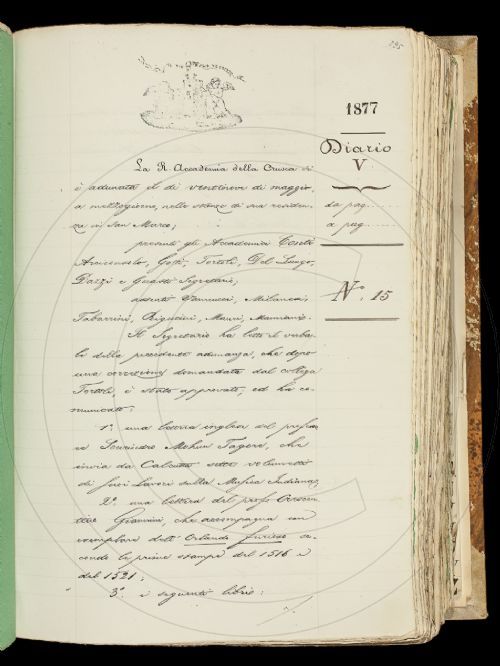 1877
Diario
V
da pag.
a pag.
N.° 15
La R. Accademia della Crusca si
è adunata il dì ventinove di maggio,
a mezzogiorno, nelle stanze di sua residen-
za in San Marco;
presenti gli Accademici Conti
Arciconsolo, Gotti, Tortoli, Del Lungo,
Dazzi e Guasti Segretario;
assenti Vannucci, Milanesi,
Tabarrini, Rigutini, Mauri, Mamiani.
Il Segretario ha letto il verba-
le della precedente adunanza, che dopo
una correzione domandata dal collega
Tortoli, è stato approvato, ed ha co-
municato:
1.° una lettera inglese del professo-
re Sourindro Mohun Tagore, che
invia da Calcutta sette volumetti
di suoi Lavori sulla Musica Indiana;
2.° una lettera del prof. Crescen-
tino Giannini, che accompagna un
esemplare dell'Orlando furioso se-
condo le prime stampe del 1516 e
del 1521;
3.° i seguenti libri: